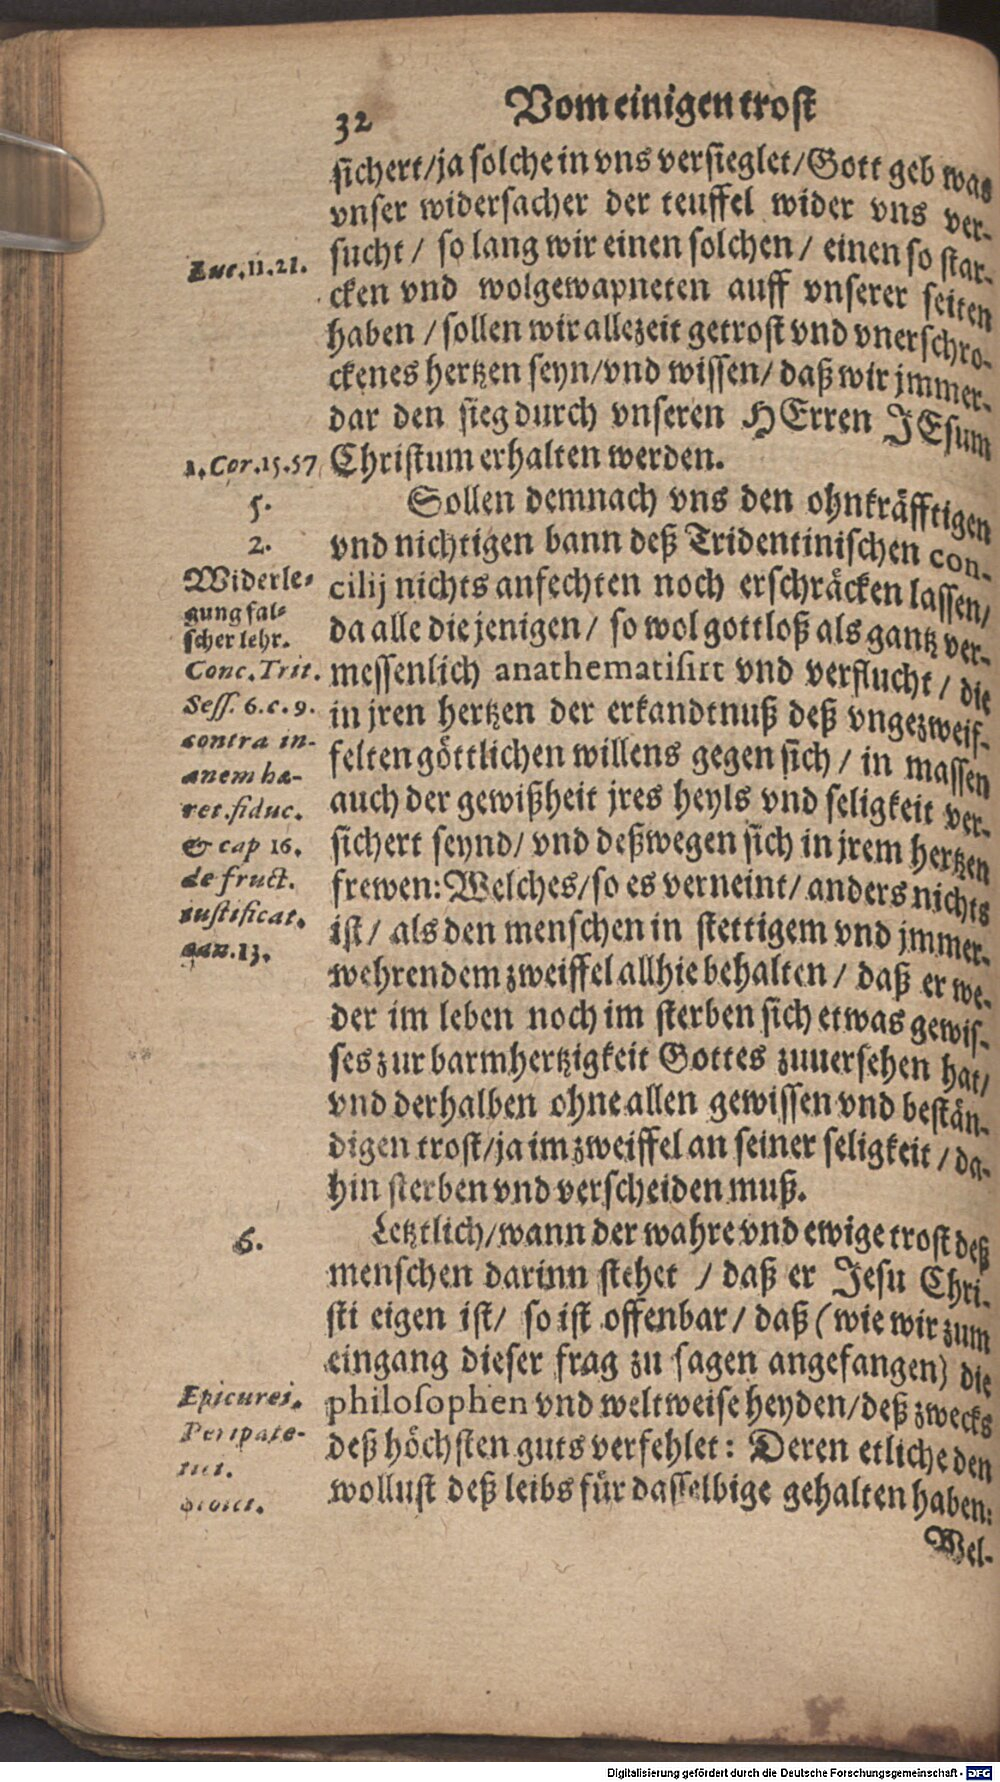 32 Vom einigen trost
sichert/ja solche in vns versieglet/Gott geb was
vnser widersacher der teuffel wider vns ver-
sucht / so lang wir einen solchen / einen so star-
Luc.11.21.
cken vnd wolgewapneten auff vnserer seiten
haben / sollen wir allezeit getrost vnd vnerschro-
ckenes hertzen seyn/vnd wissen/ daß wir jmmer-
dar den sieg durch vnseren HErren JEsum
1.Cor.15.57
Christum erhalten werden.
5.
Sollen demnach vns den ohnkräfftigen
2.
vnd nichtigen bann deß Tridentinischen con-
Widerle-
cilij nichts anfechten noch erschräcken lassen/
gung fal-
scher lehr.
da alle die jenigen / so wol gottloß als gantz ver-
Conc.Trit.
messenlich anathematisirt vnd verflucht / die
Sess. 6.c.9.
in jren hertzen der erkandtnuß deß vngezweif-
contra in-
felten göttlichen willens gegen sich / in massen
anem hæ-
auch der gewißheit jres heyls vnd seligkeit ver-
ret.fiduc.
sichert seynd/ vnd deßwegen sich in jrem hertzen
& cap 16.
frewen: Welches/so es verneint/anders nichts
de fruct.
iustificat.
ist/ als den menschen in stettigem vnd jmmer-
can.13.
wehrendem zweiffel allhie behalten / daß er we-
der im leben noch im sterben sich etwas gewis-
ses zur barmhertzigkeit Gottes zuuersehen hat/
vnd derhalben ohne allen gewissen vnd bestän-
digen trost/ja im zweiffel an seiner seligkeit / da-
hin sterben vnd verscheiden muß.
6.
Letztlich/wann der wahre vnd ewige trost deß
menschen darinn stehet / daß er Jesu Chri-
sti eigen ist/ so ist offenbar / daß (wie wir zum
eingang dieser frag zu sagen angefangen) die
Epicurei.
philosophen vnd weltweise heyden/deß zwecks
Peripate-
deß höchsten guts verfehlet: Deren etliche den
tici.
wollust deß leibs für dasselbige gehalten haben:
Stoici.
Wel-
Digitalisierung gefördert durch die Deutsche Forschungsgemeinschaft - DFG